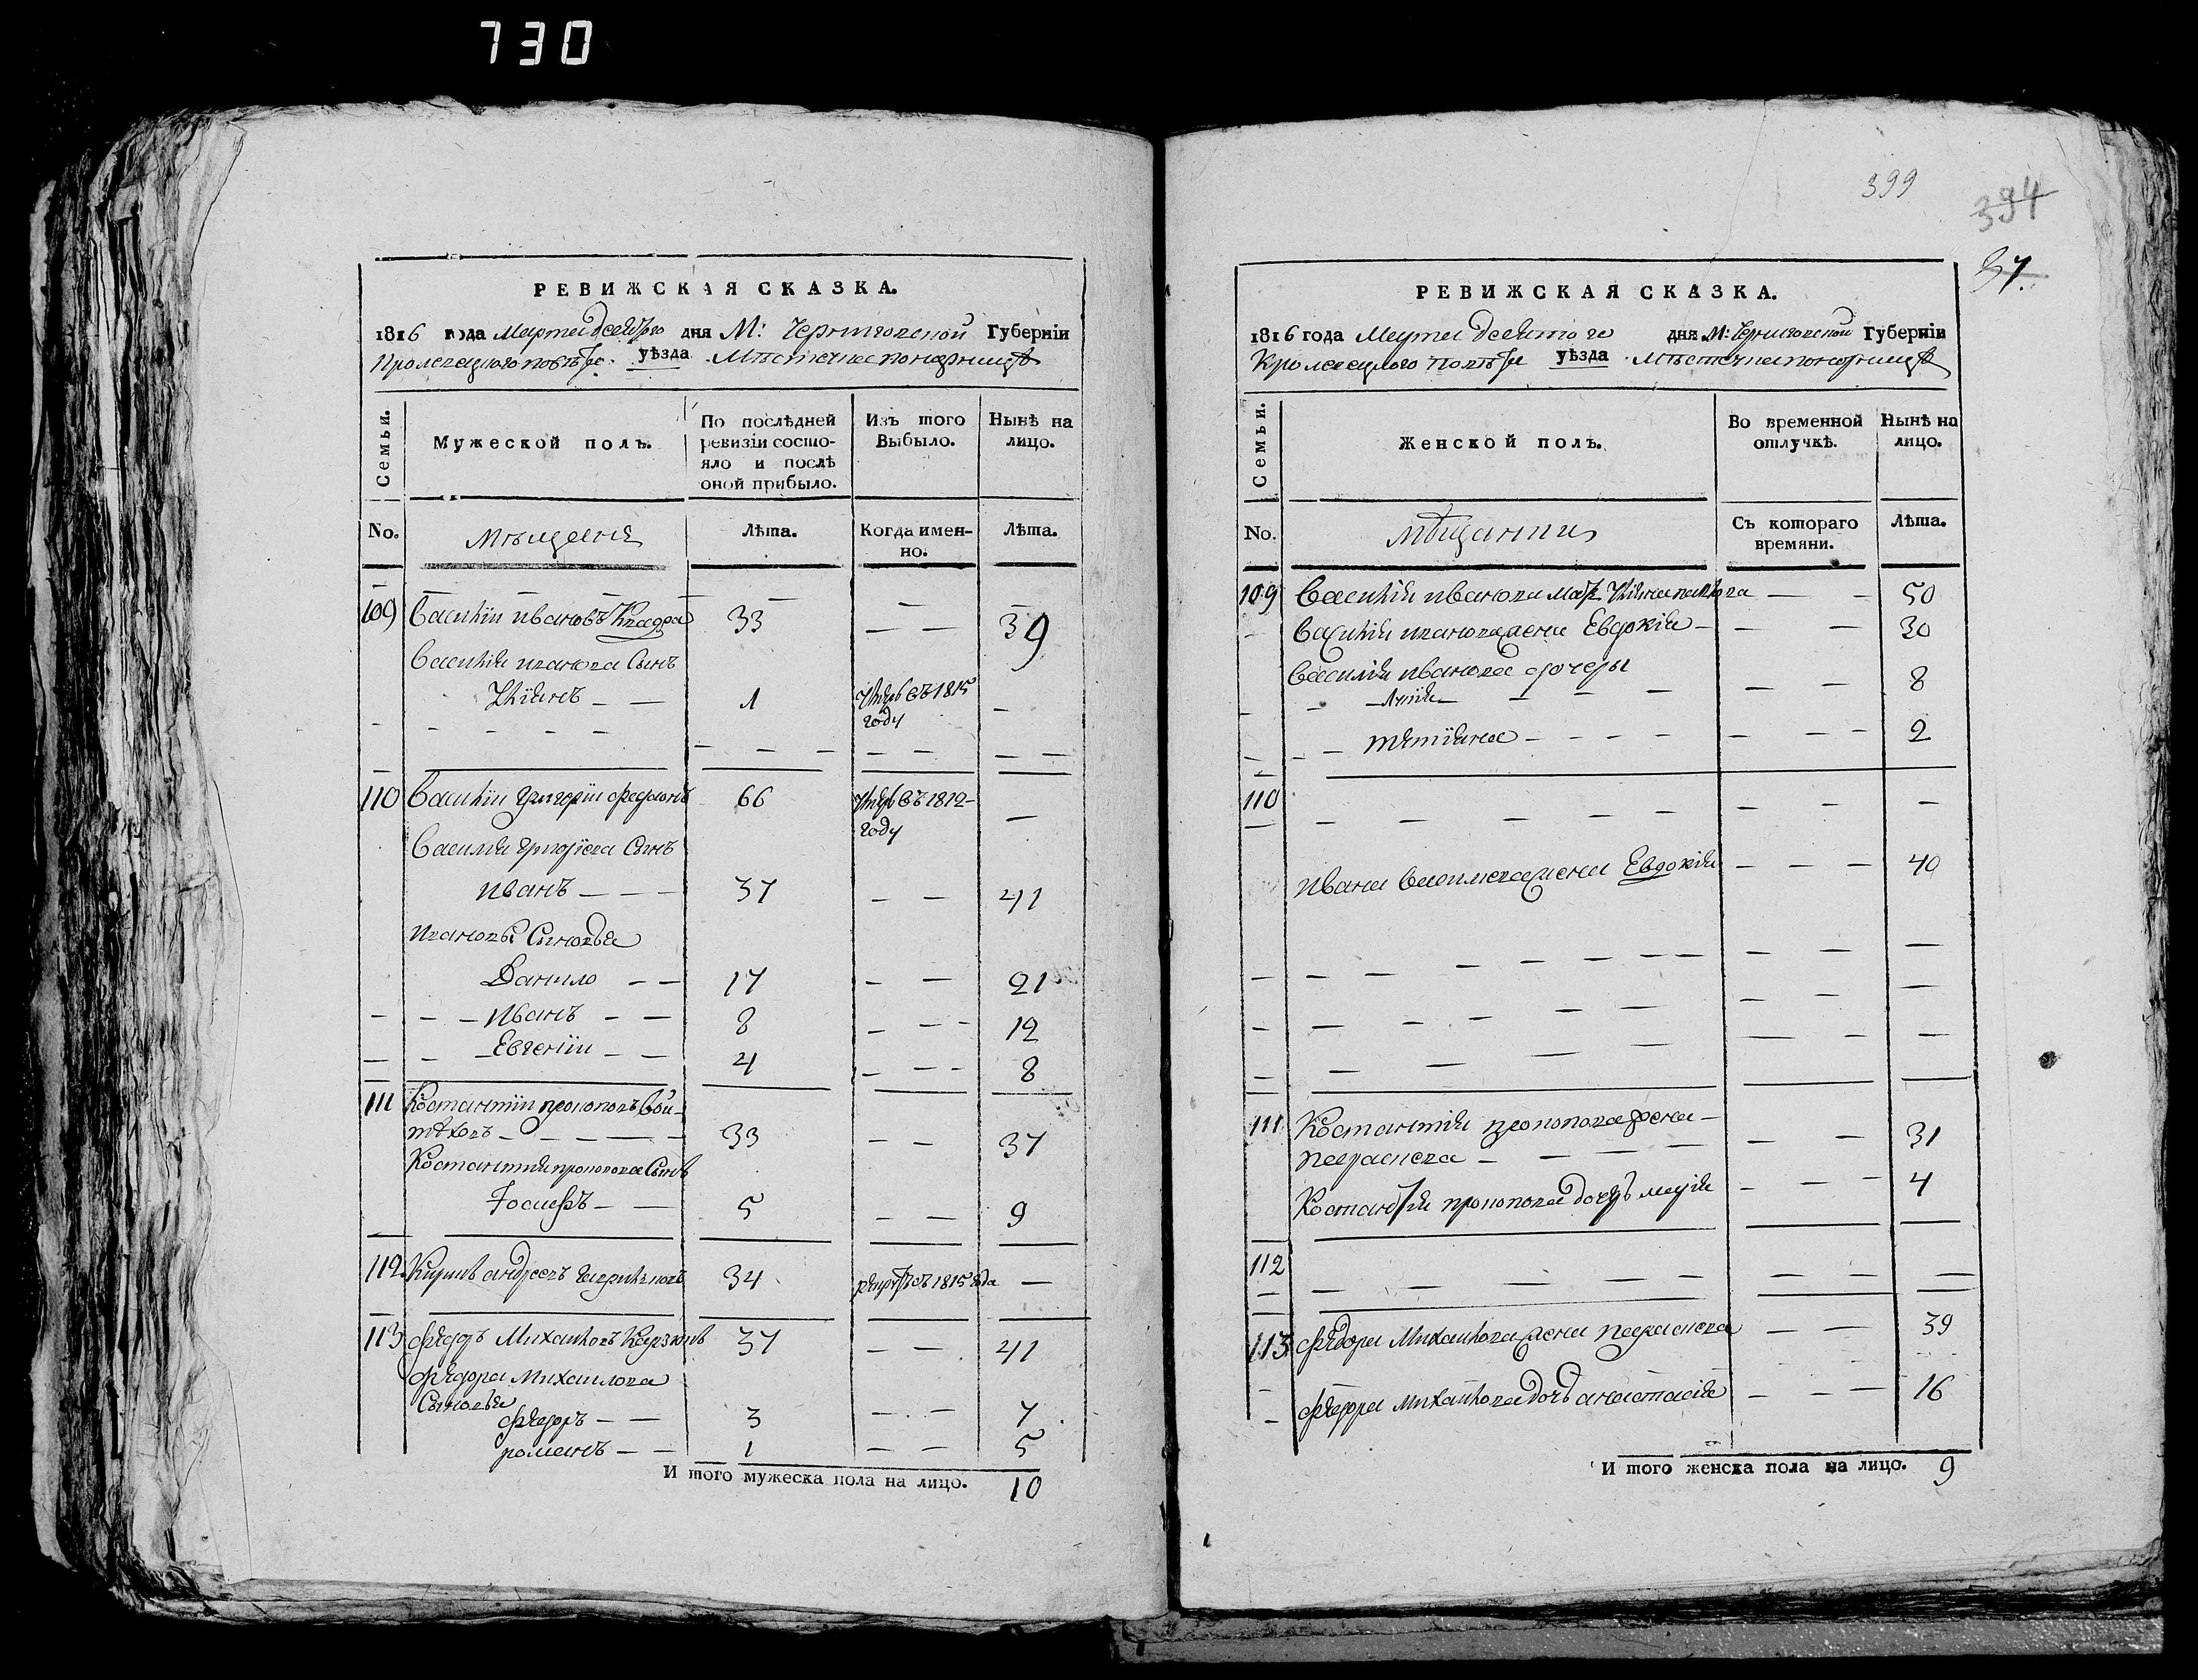 730
РЕВИЖСКАЯ СКАЗКА.
1816 года Марта десятого дня М: Черниговской Губерніи
Кролевецкого повѣта уѣзда Мѣстечка понорницѣ
Семьи.
Мужеской полъ.
По послѣдней ревизіи состояло и послѣ оной прибыло.
Изъ того Выбыло.
Нынѣ на лицо.
No. Мѣщаня Лѣта. Когда именно. Лѣта.
109 Василіи ивановъ 33 — — 39
Василія иванова Сынъ
Уліянъ — — 1 Умре въ 1815 году —
110 Василіи григоріи 66 Умре въ 1812 году —
Василия григоріева Сынъ
иванъ — — — 37 — — 41
ивановы Сыновья
Данило — — 17 — — 21
— — Иванъ — — 8 — — — 12
— — Евгеніи — — 4 — — — 8
111 Костантіи прокоповъ вои-
тѣховъ — — — — 33 — — 37
Костантия прокопова Сынъ
Іосифъ — — 5 — — 9
112 андреевъ 34 1815 года —
113 Фядоръ Михаиловъ 37 — — 41
Фядора Михаилова
Сыновья
Фядоръ — — 3 — — — 7
романъ — — 1 — — 5
И того мужеска пола на лицо. 10
399
394
37.
РЕВИЖСКАЯ СКАЗКА.
1816 года Марта десятого дня М: Черниговской Губерніи
Кролевецкого повѣта уѣзда Мѣстечка понорницѣ
Семьи.
Женской полъ.
Во временной отлучкѣ.
Нынѣ на лицо.
No. мѣщанки Съ котораго времяни. Лѣта.
109 Василія иванова мать Уліяна — — 50
Василія иванова жена Евдокія — — — 30
Василия иванова дочеры
— — — — — — 8
— — тятіяна — — — — — — — 2
110 — — — — — — — —
ивана василиева жена Евдокія — — — 40
111 Костантія прокопова жена —
параскева — — — — — — 31
Костантія прокопова дочъ марія — — — 4
112 — — — — — — —
113 Фядора Михаилова жена параскева — — 39
Фядора михаилова дочъ анастасія — — — 16
И того женска пола на лицо. 9